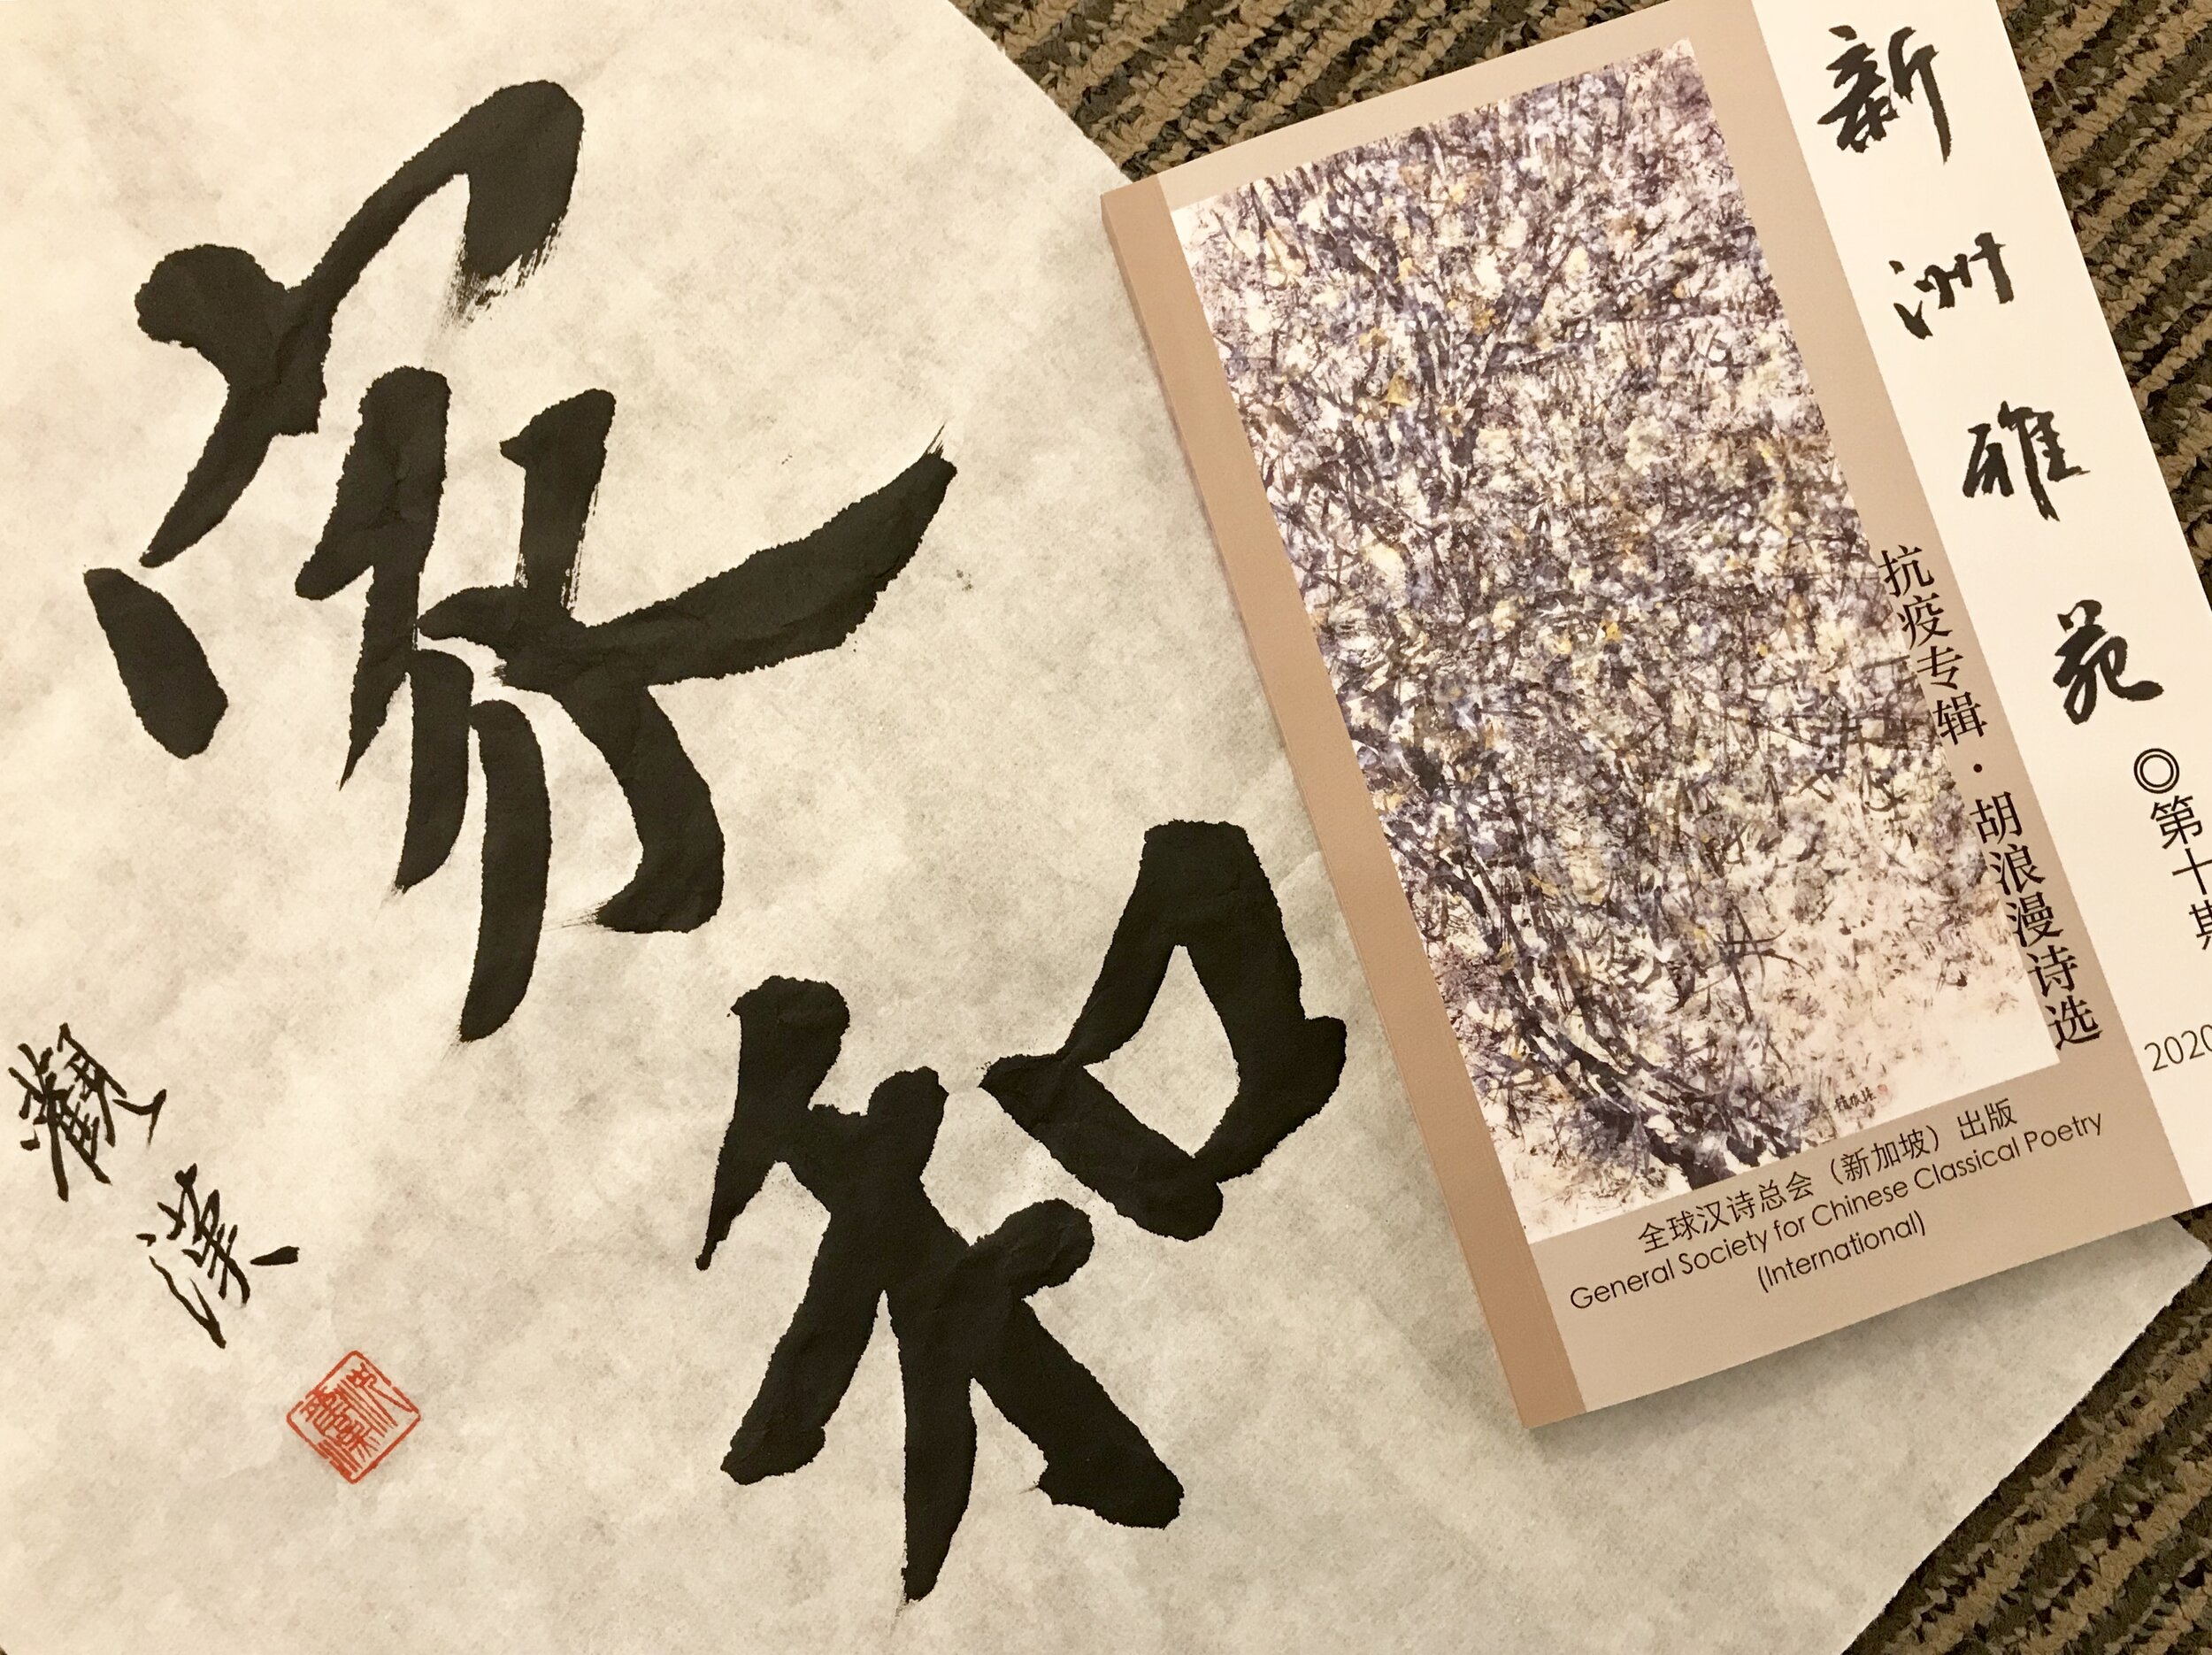 家和
觀漢
新洲雅苑
◎第十期
2020
抗疫专辑·胡浪漫诗选
全球汉诗总会（新加坡）出版
General Society for Chinese Classical Poetry
(International)